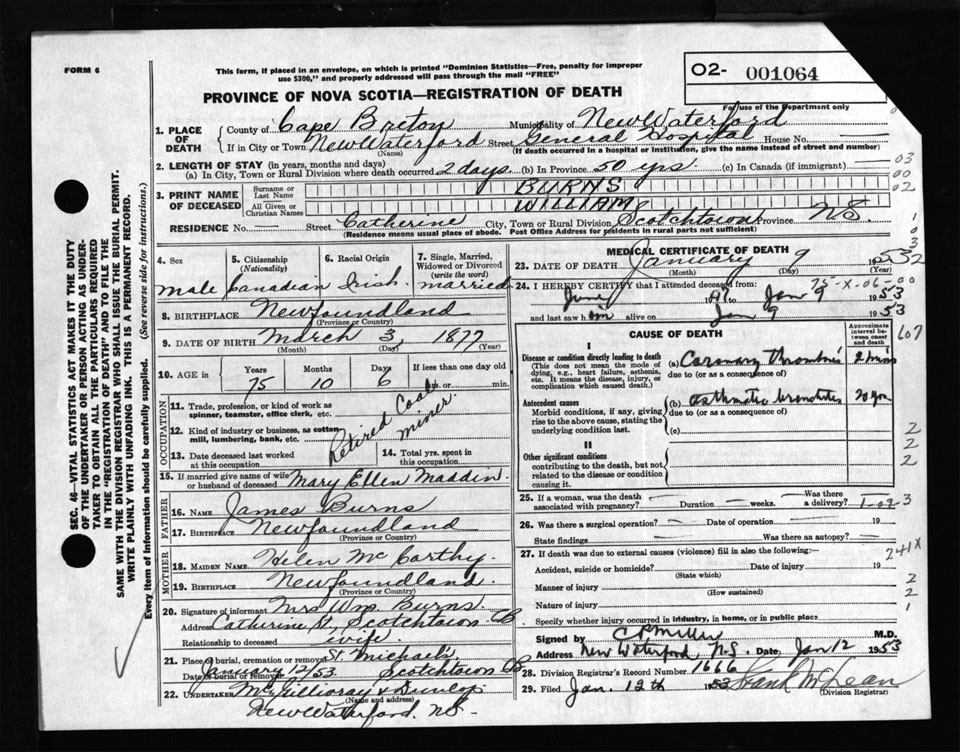 FORM 6
This form, if placed in an envelope, on which is printed "Dominion Statistics—Free, penalty for improper
use $300," and properly addressed will pass through the mail "FREE"
O2- 001064
For use of the Department only
PROVINCE OF NOVA SCOTIA—REGISTRATION OF DEATH
1. PLACE OF DEATH
County of Cape Breton Municipality of New Waterford
If in City or Town New Waterford Street General Hospital House No. —
(Name) (If death occurred in a hospital or institution, give the name instead of street and number)
2. LENGTH OF STAY (in years, months and days)
(a) In City, Town or Rural Division where death occurred 2 days. (b) In Province 50 yrs (c) In Canada (if immigrant)
3. PRINT NAME OF DECEASED
Surname or Last Name BURNS
All Given or Christian Names WILLIAM
RESIDENCE No. — Street Catherine City, Town or Rural Division Scotchtown Province N.S.
(Residence means usual place of abode. Post Office Address for residents in rural parts not sufficient)
03
00
02
1
0
3
32
SEC. 46—VITAL STATISTICS ACT MAKES IT THE DUTY
OF THE UNDERTAKER OR PERSON ACTING AS UNDER-
TAKER TO OBTAIN ALL THE PARTICULARS REQUIRED
IN THE "REGISTRATION OF DEATH" AND TO FILE THE
SAME WITH THE DIVISION REGISTRAR WHO SHALL ISSUE THE BURIAL PERMIT.
WRITE PLAINLY WITH UNFADING INK. THIS IS A PERMANENT RECORD.
Every item of information should be carefully supplied. (See reverse side for instructions.)
4. Sex
male
5. Citizenship
(Nationality)
Canadian
6. Racial Origin
Irish
7. Single, Married,
Widowed or Divorced
(write the word)
married
8. BIRTHPLACE Newfoundland
(Province or Country)
9. DATE OF BIRTH March 3, 1877
(Month) (Day) (Year)
10. AGE in
Years Months Days If less than one day old
75 10 6 hrs. or min.
OCCUPATION
11. Trade, profession, or kind of work as
spinner, teamster, office clerk, etc.
12. Kind of industry or business, as cotton
mill, lumbering, bank, etc.
Retired Coal miner.
13. Date deceased last worked
at this occupation
14. Total yrs. spent in
this occupation
15. If married give name of wife
or husband of deceased Mary Ellen Maddin.
FATHER
16. Name James Burns
17. Birthplace Newfoundland
(Province or Country)
MOTHER
18. MAIDEN NAME Helen McCarthy.
19. BIRTHPLACE Newfoundland.
(Province or Country)
20. Signature of informant Mrs Wm. Burns.
Address Catherine St., Scotchtown CB
Relationship to deceased wife.
21. Place of burial, cremation or removal St. Michaels Scotchtown CB.
Date of burial or removal January 12/53.
22. UNDERTAKER McGillivray & Dunlop
(Name and address)
New Waterford. N.S.
MEDICAL CERTIFICATE OF DEATH
23. DATE OF DEATH January 9 1953
(Month) (Day) (Year)
75-X-06-00
24. I HEREBY CERTIFY that I attended deceased from
June to Jan 9 1953
and last saw him alive on Jan 9 1953
CAUSE OF DEATH
Approximate interval between onset and death
I
Disease or condition directly leading to death
(This does not mean the mode of
dying, e.g., heart failure, asthenia,
etc. It means the disease, injury, or
complication which caused death.)
(a) Coronary thrombosis 2 mins
due to (or as a consequence of)
Antecedent causes
Morbid conditions, if any, giving
rise to the above cause, stating the
underlying condition last.
(b) asthmatic bronchitis 20 yrs
due to (or as a consequence of)
(c)
II
Other significant conditions
contributing to the death, but not
related to the disease or condition
causing it.
67
2
2
2
25. If a woman, was the death
associated with pregnancy? — Duration — weeks. Was there
a delivery? —
3
26. Was there a surgical operation? — Date of operation — 19
State findings Was there an autopsy? —
27. If death was due to external causes (violence) fill in also the following:—
241X
Accident, suicide or homicide? Date of injury 19
(State which)
Manner of injury
(How sustained)
Nature of injury
2
2
1
Specify whether injury occurred in industry, in home, or in public place
Signed by C R Miller M.D.
Address New Waterford, N.S. Date Jan 12 1953
28. Division Registrar's Record Number 1666
29. Filed Jan. 12th 1953 Frank McLean
(Division Registrar)